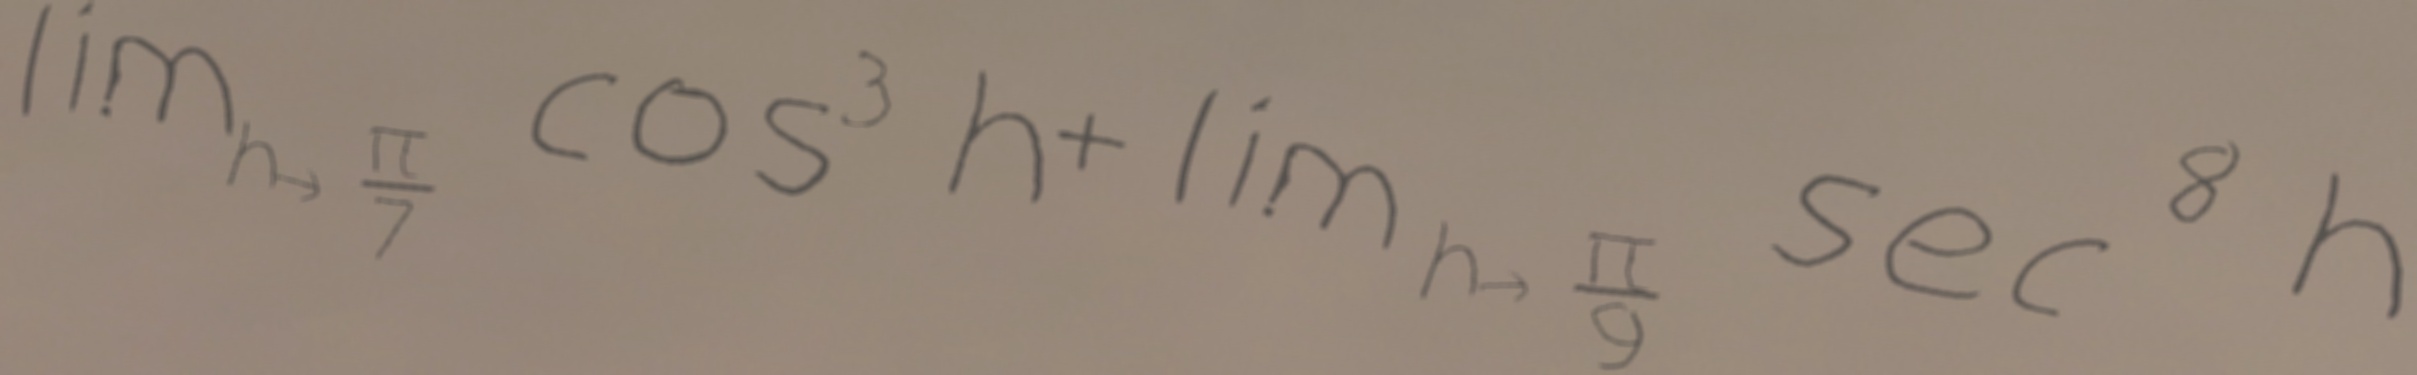 \lim_{h \to \frac{\pi}{7}} \cos^3 h + \lim_{h \to \frac{\pi}{9}} \sec^8 h